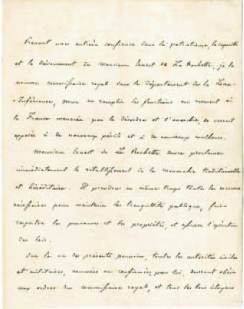 Prenant une entière confiance dans le patriotisme, la capacité
et le dévouement de monsieur Ernest de La Rochette, je le
nomme commissaire royal dans le département de la Loire-
Inférieure, pour en remplir les fonctions au moment où
la France menacée par le désordre et l'anarchie, se verrait
exposée à de nouveaux périls et à de nouveaux malheurs.
Monsieur Ernest de La Rochette devra proclamer
immédiatement le rétablissement de la monarchie traditionnelle
et héréditaire. Il prendra en même temps toutes les mesures
nécessaires pour maintenir la tranquillité publique, faire
respecter les personnes et les propriétés, et assurer l'exécution
des lois.
Sur la vue des présents pouvoirs, toutes les autorités civiles
et militaires, nommées ou confirmées par lui, devront obéir
aux ordres du commissaire royal, et tous les bons citoyens